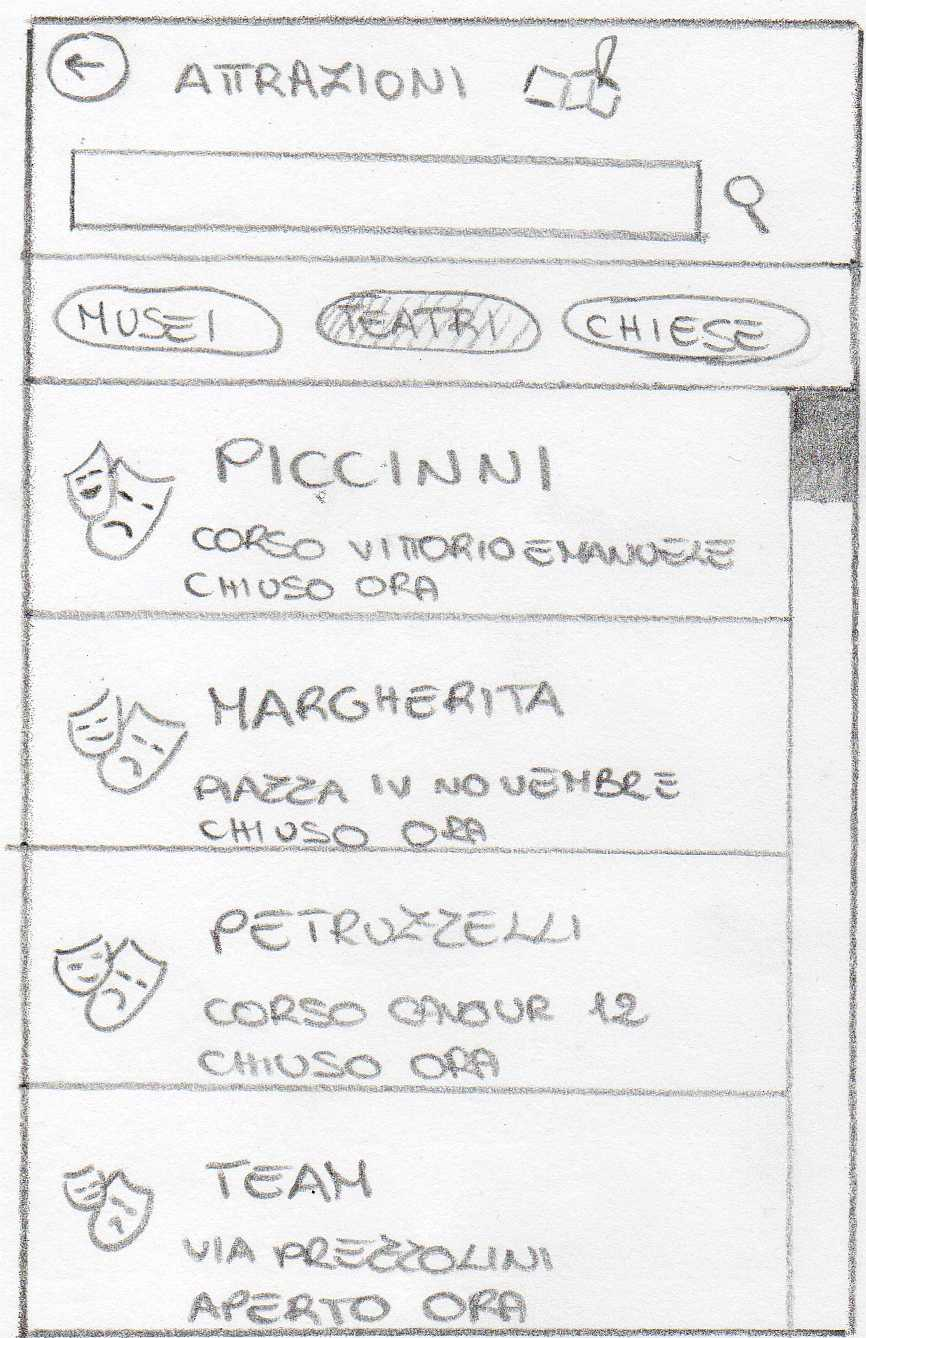 ATTRAZIONI
MUSEI
TEATRI
CHIESE
PICCINNI
CORSO VITTORIO EMANUELE
CHIUSO ORA
MARGHERITA
PIAZZA IV NOVEMBRE
CHIUSO ORA
PETRUZZELLI
CORSO CAVOUR 12
CHIUSO ORA
TEAM
VIA PREZZOLINI
APERTO ORA